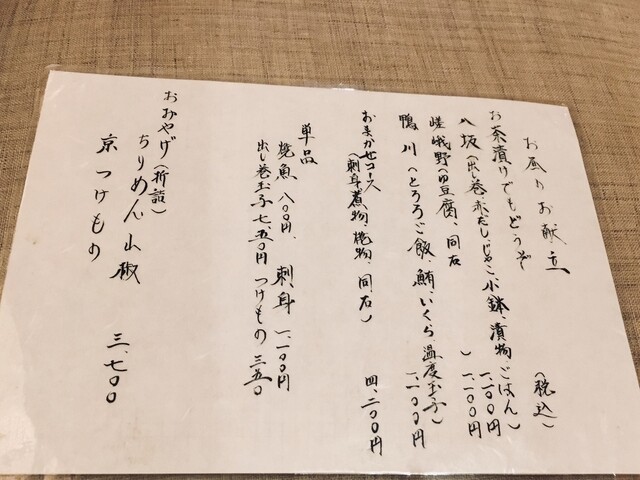 お昼りお献立 (税込)
お茶漬けでもどうぞ
八坂(出し巻、赤だし、じゃこ、小鉢、漬物、ごはん) 一、一〇〇円
嵯峨野(ゆ豆腐、同右) 一、一〇〇円
鴨川(とろろご飯、鮪、いくら、温度玉子) 一、一〇〇円
おまかせコース 四、二〇〇円
(刺身、煮物、焼物、同右)
単品
焼魚 八〇〇円、刺身 一、一〇〇円
出し巻玉子 七、五〇円 つけもの 三五〇
おみやげ(折詰)
ちりめん山椒
京つけもの 三、七〇〇